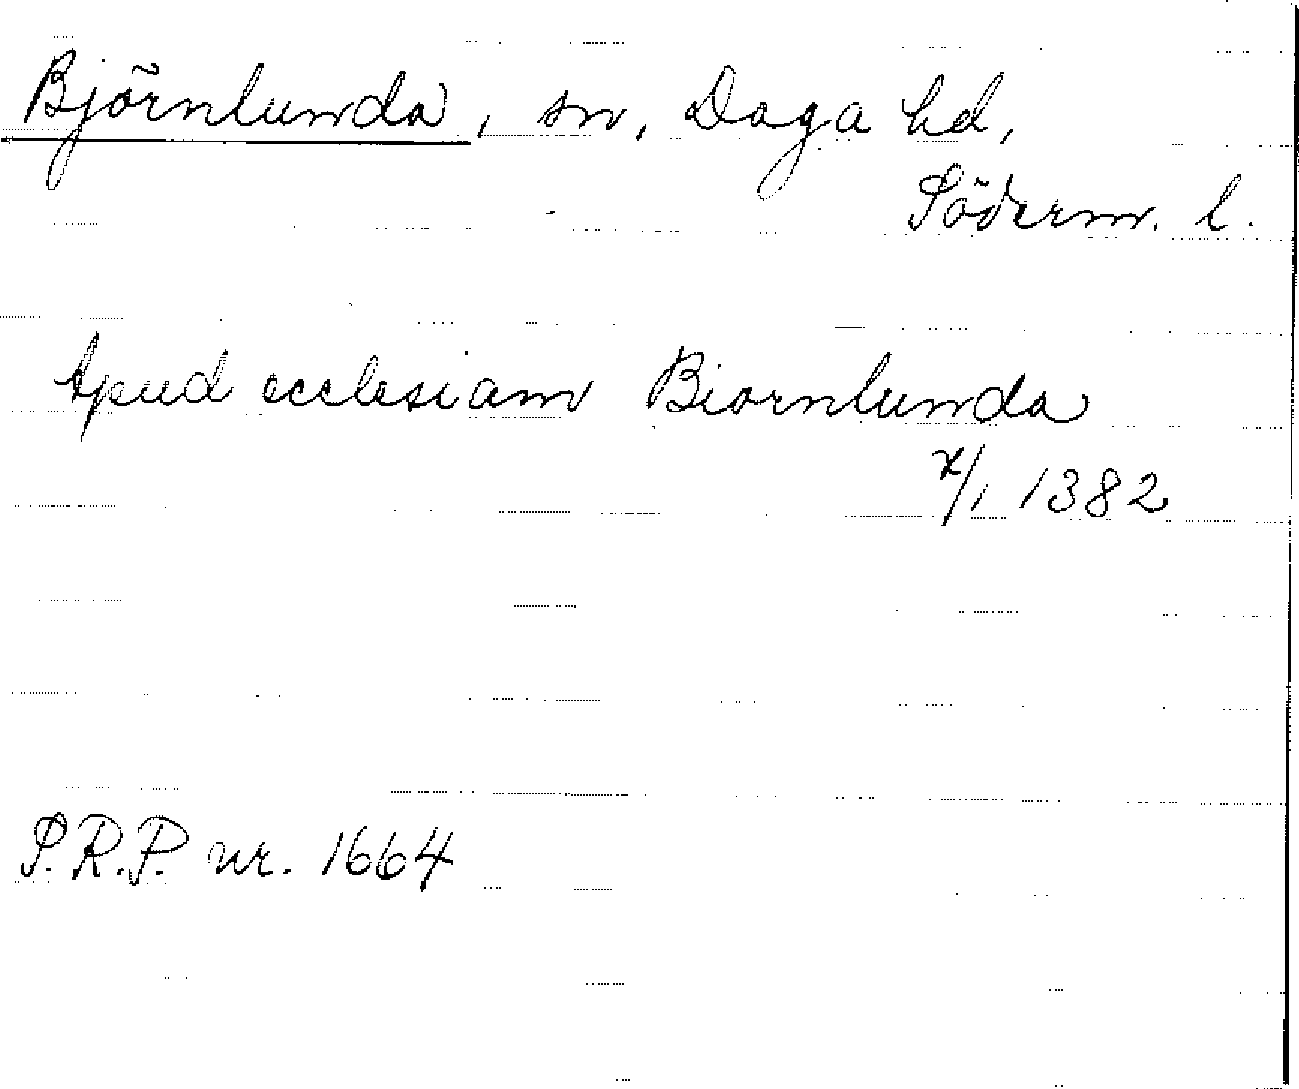 Björnlunda, sn, Daga hd,
Söderm. l.
Apud ecclesiam Biornlunda
1382
S.R.P. nr. 1664